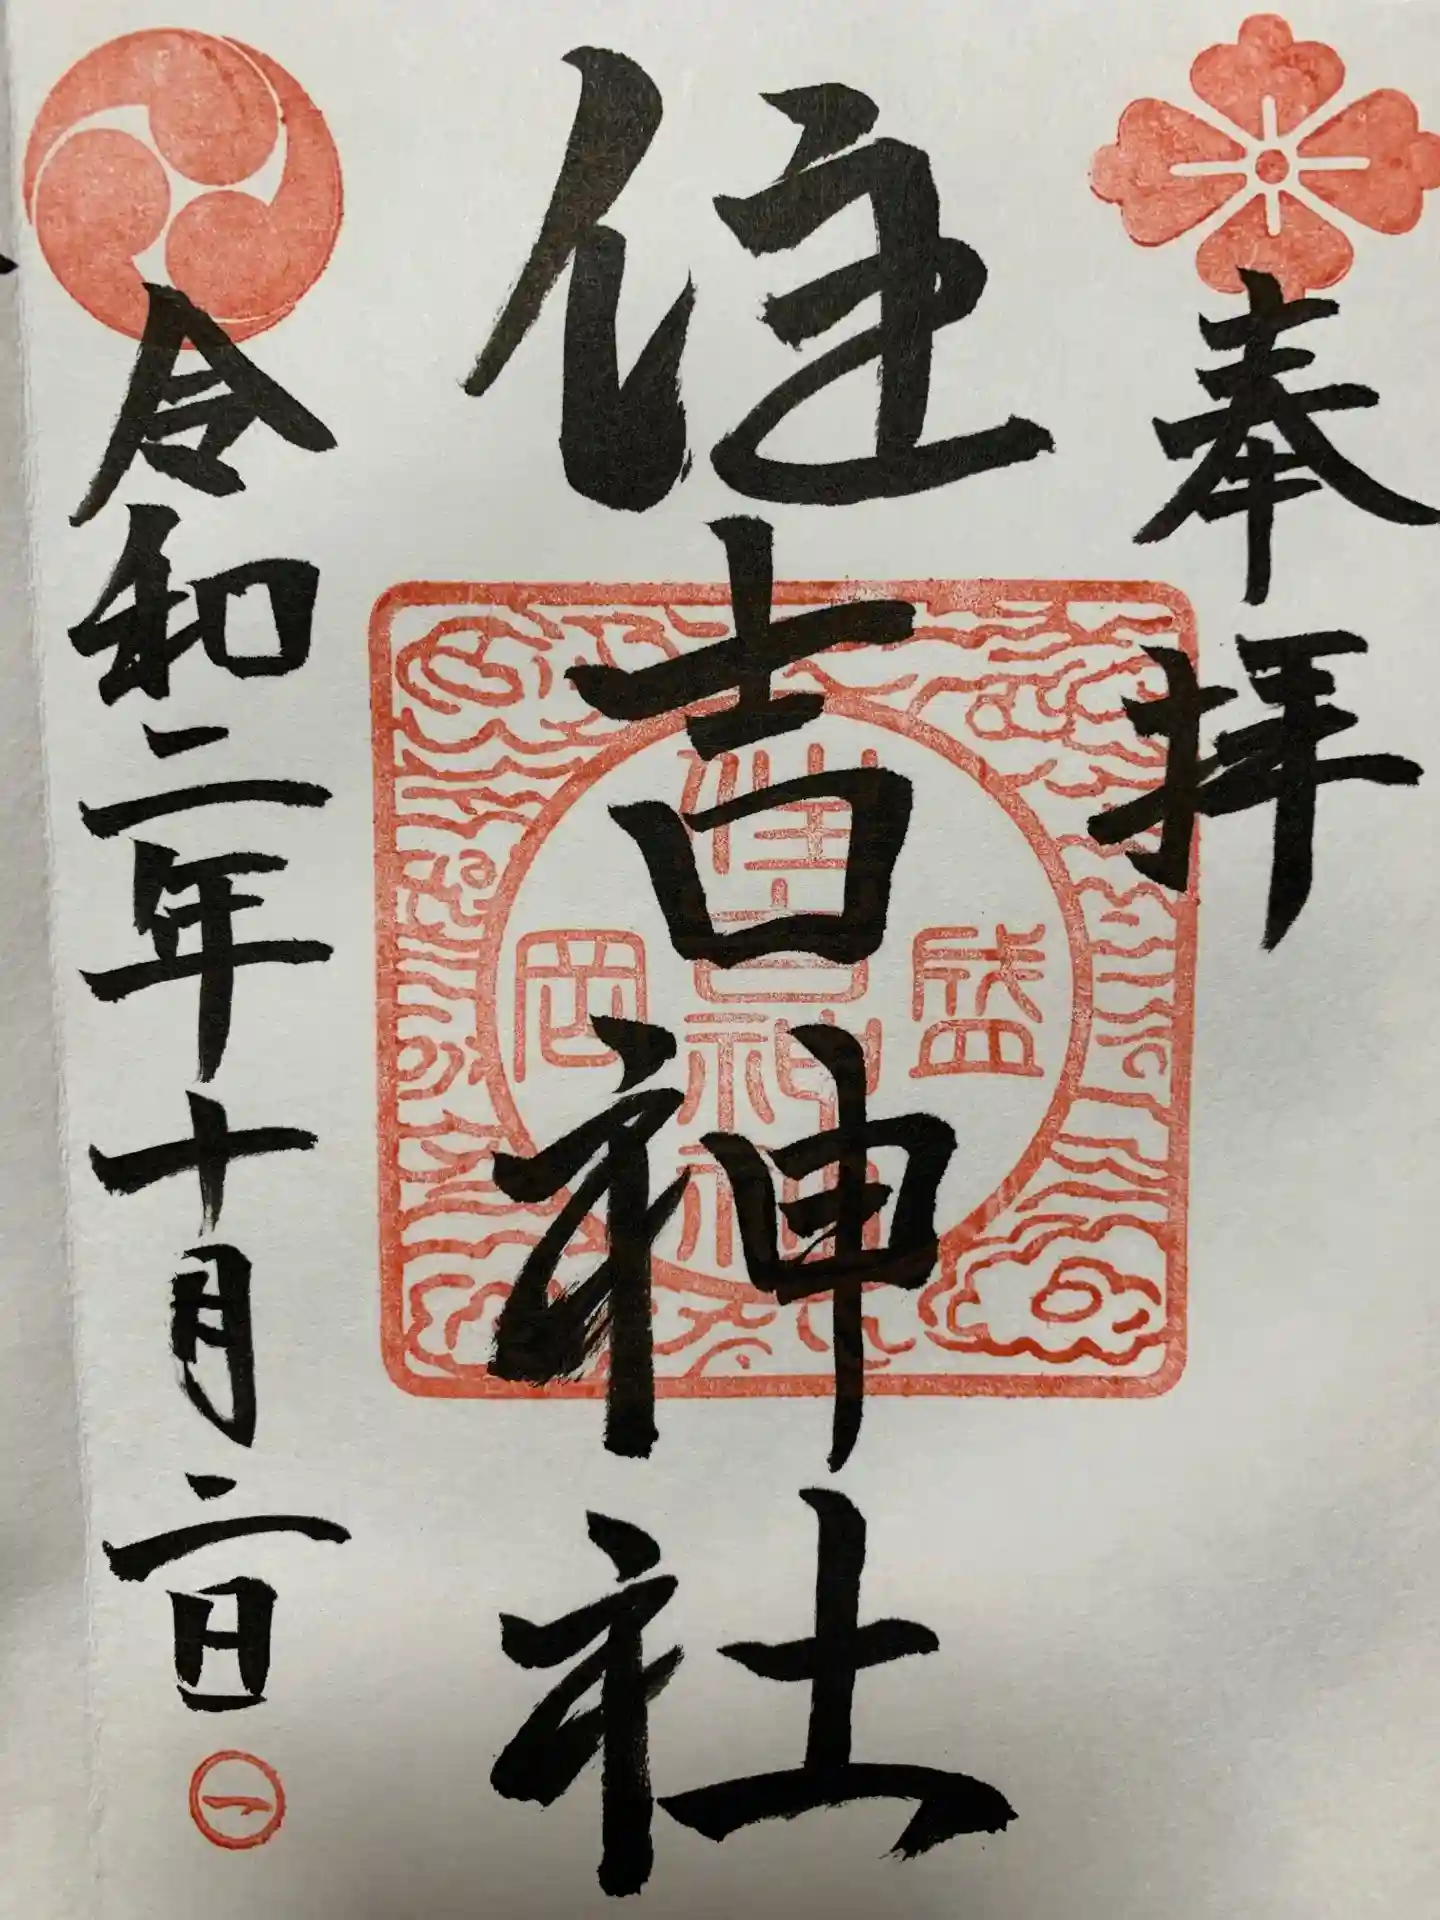 奉拝
住吉神社
盛
住吉神社
岡
令和二年十月二日
一